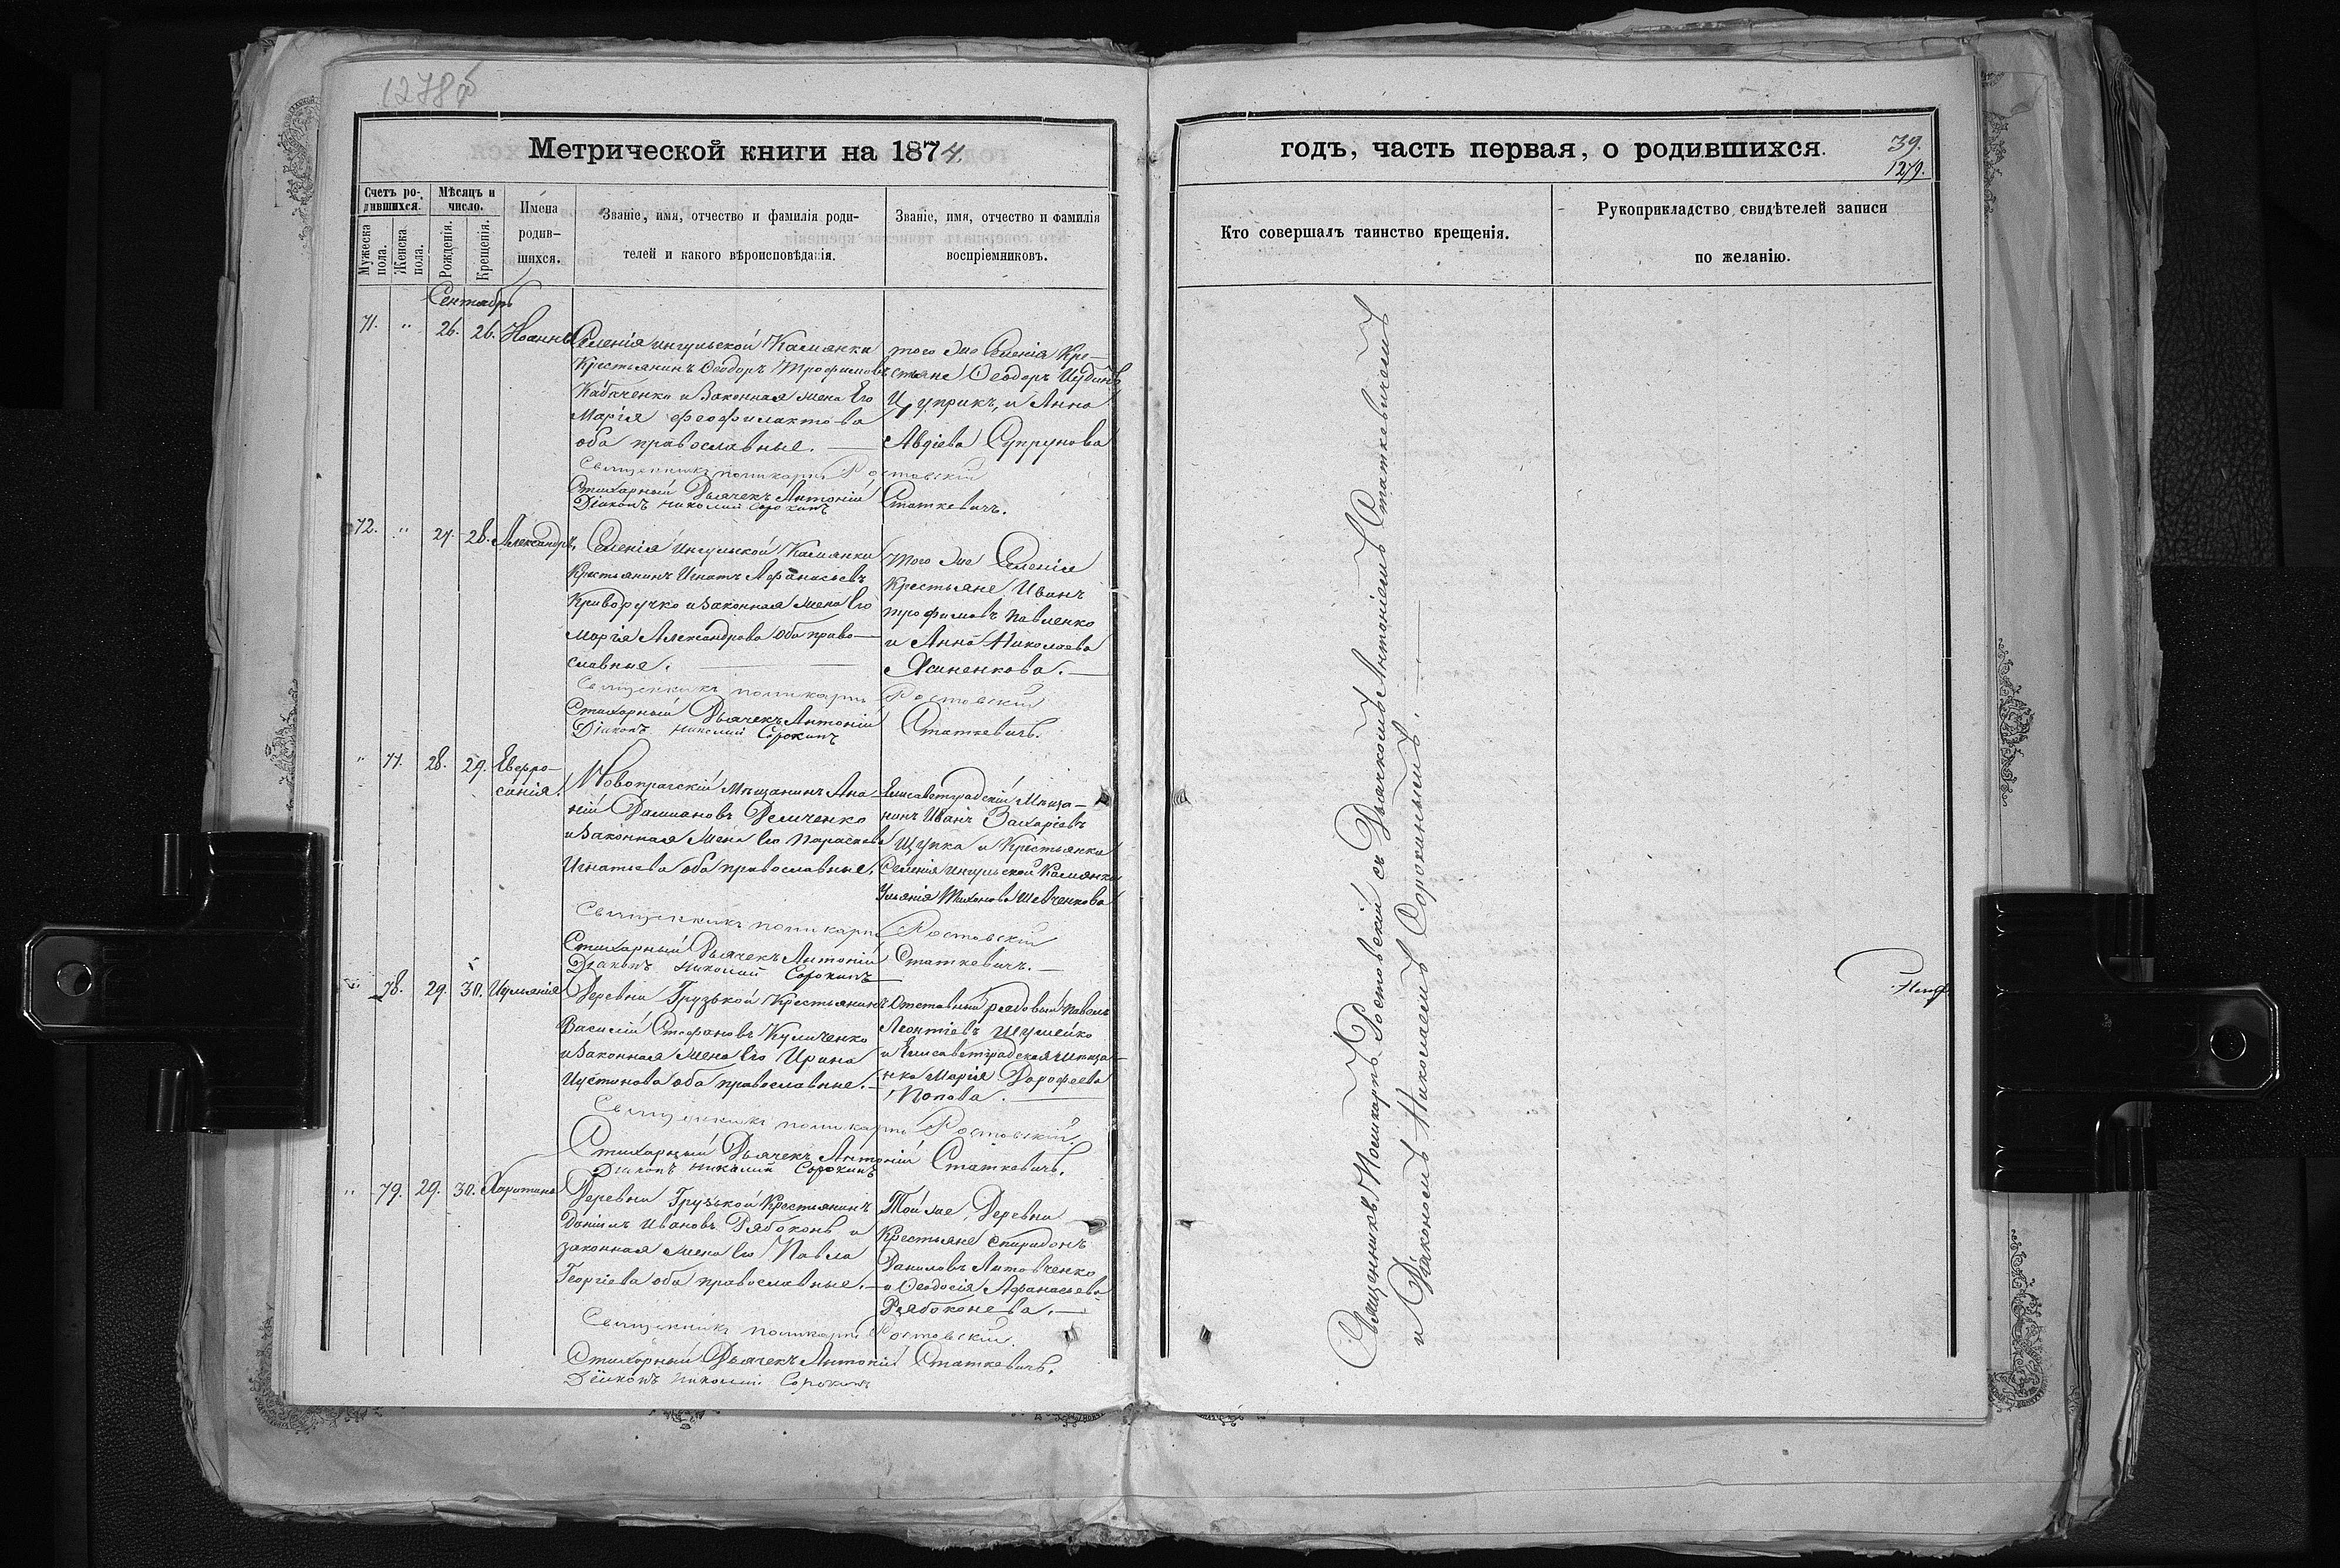 1278б
Метрической книги на 1874.
Счетъ ро-
дившихся.
Мѣсяцъ и
число.
Мужеска пола.
Женска пола.
Рожденія.
Крещенія.
Имена
родив-
шихся.
Званіе, имя, отчество и фамилія роди-
телей и какого вѣроисповѣданія.
Званіе, имя, отчество и фамилія
воспріемниковъ.
Сентябрь
71. " 26. 26. Іоаннъ
Селенія Ингульской Камянки
Крестьянинъ Ѳеодоръ Трофимовъ
Кабаченко и Законная жена Его
Марія Феофилактова
оба православные. —
того же Селенія Кре-
стьяне Ѳеодоръ
Цуприкъ, и Анна
Авдіева Супрунова
Священникъ Поликарпъ Ростовскій
Стихарный Дьячекъ Антоній Статкевичъ.
Діаконъ Николай Сорокинъ
72. " 27. 28. Александръ,
Селенія Ингульской Камянки
Крестьянинъ Игнатъ Афанасьевъ
Криворучко и Законная жена Его
Марія Александрова оба право-
славные. —
того же Селенія
Крестьяне Иванъ
Трофимовъ Павленко
и Анна Николаева
Ясиненкова. —
Священникъ Поликарпъ Ростовскій
Стихарный Дьячекъ Антоній Статкевичъ.
Діаконъ Николай Сорокинъ
" 77. 28. 29. Евфро-
синія.
Новопрагскій Мѣщанинъ Ана-
ній Даміановъ Демченко
и Законная жена Его Параскева
Игнатьева оба православные.
Елисаветградскій Мѣща-
нинъ Иванъ Захаріевъ
Щупка и Крестьянка
Селенія Ингульской Камянки
Ульянія Тихонова Шевченкова
Священникъ Поликарпъ Ростовскій
Стихарный Дьячекъ Антоній Статкевичъ. —
Діаконъ Николай Сорокинъ
" 78. 29. 30. Іуліанія
Деревни Грузькой Крестьянинъ
Василій Стефановъ Куличенко
и Законная жена Его Ирина
Іустинова оба православные. —
Отставный рядовый Павелъ
Леонтіевъ Шумейко
и Елисаветградская Мѣща-
нка Марія Дорофеева
Попова. —
Священникъ Поликарпъ Ростовскій.
Стихарный Дьячекъ Антоній Статкевичъ.
Діаконъ Николай Сорокинъ
" 79. 29. 30. Харитина
Деревни Грузькой Крестьянинъ
Даніилъ Ивановъ Рябоконь и
законная жена Его Павла
Георгіева оба православные. —
Той же Деревни
Крестьяне Спиридонъ
Даниловъ Литовченко
и Ѳеодосія Афанасьева
Рябоконева. —
Священникъ Поликарпъ Ростовскій.
Стихарный Дьячекъ Антоній Статкевичъ.
Діаконъ Николай Сорокинъ
годъ, часть первая, о родившихся.
39.
1279.
Кто совершалъ таинство крещенія.
Рукоприкладство свидѣтелей записи
по желанію.
Священникъ Поликарпъ Ростовскій съ Дьячкомъ Антоніемъ Статкевичемъ
и Діакономъ Николаемъ Сорокинымъ. —